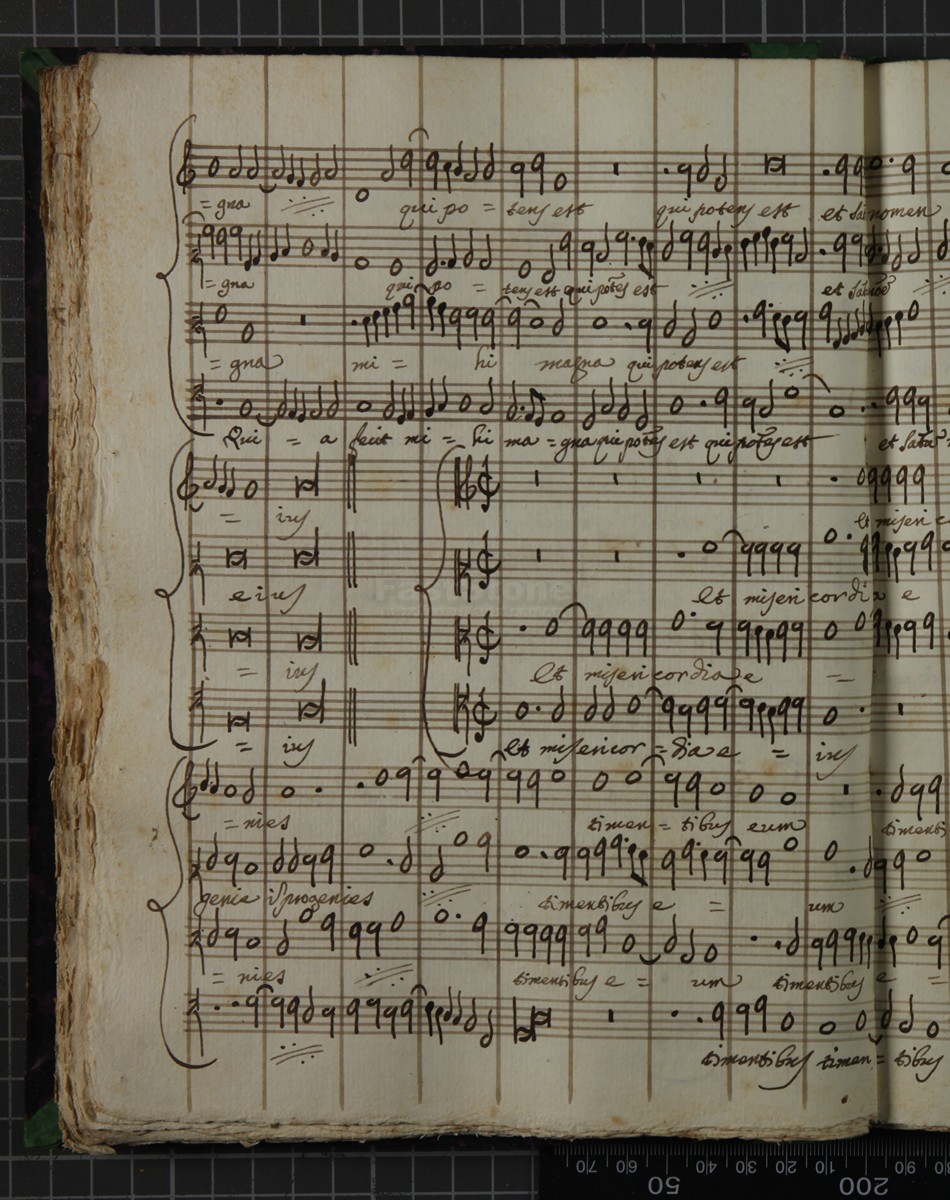 = gna qui po = tens est qui potens est et san nomen
= gna qui po = tens est qui potẽs est et
= gna mi = hi magna qui potens est
Qui = a fecit mi = hi ma = gna qui potẽs est qui potẽs est et
= ius et miseri c
eius et misericordia e
= ius et misericordia e =
= ius et misericor = dia e = ius
= nies timen = tibus eum timenti
genie i progenies timentibus e = um
= nies timentibus e = um timentibus e =
timentibus timen = tibus
70 60 50 40 30 20 10 200 90 80